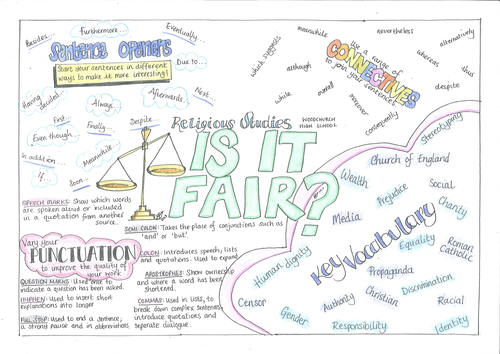 Besides...
Furthermore...
Eventually...
Sentence Openers
Start your sentences in different
ways to make it more interesting!
Due to...
Having
decided...
Always...
Afterwards...
Next...
First...
Finally...
Despite...
Even though...
Meanwhile...
In addition
Soon...
If...
meanwhile
nevertheless
alternatively
which suggests
although
Use a range of
CONNECTIVES
to join your sentences!
whereas
thus
while
overall
moreover
consequently
despite
Religious Studies
WOODCHURCH
HIGH SCHOOL
IS IT
FAIR?
SPEECH MARKS: Show which words
are spoken aloud or included
in a quotation from another
source.
SEMI-COLON: Takes the place of conjunctions such as
'and' or 'but'.
Vary your
PUNCTUATION
to improve the quality of
your work
COLON: Introduces speech, lists
and quotations. Used to expand.
QUESTION MARKS: Used once to
indicate a question has been asked.
HYPHEN: Used to insert short
explanations into longer
FULL STOP: Used to end a sentence,
a strong pause and in abbreviations.
APOSTROPHES: Show ownership
and where a word has been
shortened.
COMMAS: Used in lists, to
break down complex sentences,
introduce quotations and
seperate dialogue.
Stereotyping
Church of England
Wealth
Prejudice
Social
Charity
Media
Key Vocabulary
Equality
Roman
Catholic
Human dignity
Propaganda
Discrimination
Censor
Authority
Christian
Racial
Gender
Responsibility
Identity